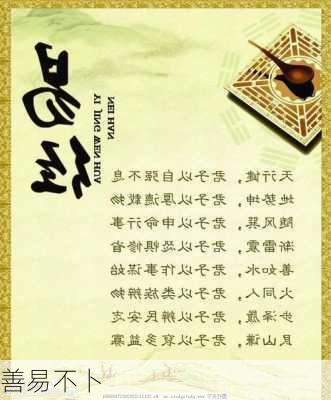 YI JING WEN HUA
NEI HAN
天行健，君子以自强不息
地势坤，君子以厚德载物
随风巽，君子以申命行事
渐雷震，君子以恐惧修省
善如水，君子以作事谋始
火同人，君子以类族辨物
步泽履，君子以辨民安志
艮山谦，君子以裒多益寡
善易不卜